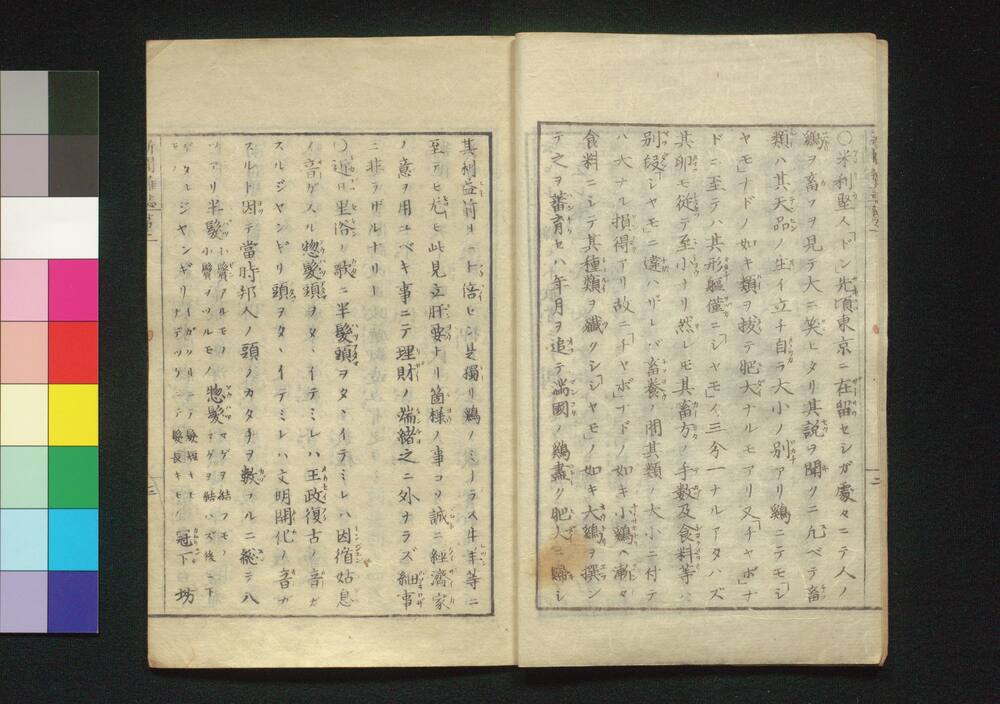 〇米利堅人「ドン」先頃東京ニ在留セシガ處々ニテ人ノ
鷄ヲ畜フヲ見テ大ニ笑ヒタリ其説ヲ聞クニ凡ベテ畜
類ハ其天品ノ生イ立チ自ラ大小ノ別アリ鷄ニテモ「シ
ヤモ」ナドノ如キ類ヲ拔テ肥大ナルモアリ又「チャボ」ナ
ドニ至テハ其形軀僅ニ「シャモ」ノ三分一ナルアタハズ
其卵モ從テ至小ナリ然レモ其畜方ノ手數及食料等ハ
別段「シャモ」ニ違ハザレバ畜養ノ間其類ノ大小ニ付テ
ハ大ナル損得アリ故ニ「チャボ」ナドノ如キ小鷄ハ漸々
食料ニシテ其種類ヲ殱クシ「シャモ」ノ如キ大鷄ヲ撰ン
テ之ヲ蓄育セハ年月ヲ追テ満國ノ鷄盡ク肥大ニ歸シ
其利益前日ニ一倍セン是獨リ鷄ノミナラス牛羊等ニ
至テモ尤モ此見立肝要ナリ箇樣ノ事コソ誠ニ經濟家
ノ意ヲ用ユベキ事ニテ理財ノ端緒之ニ外ナラズ細事
ニ非ラザルナリ
〇近日里俗ノ歌ニ半髮頭ヲタヽイテミレハ因循姑息
ノ音ガスル惣髮頭ヲタヽイテミレハ王政復古ノ音ガ
スルジヤンギリ頭ヲタヽイテミレハ文明開化ノ音ガ
スルト因テ當時邦人ノ頭ノカタチヲ數フルニ総テ八
アリ半髮 大鬢アルモノ 小鬢ヲソルモノ 惣髮 マゲヲ結フモノ マゲヲ結ハズ後ニ下
タルジヤンギリ ナデツケ 髮短キモノ 髮長キモノ 冠下 坊